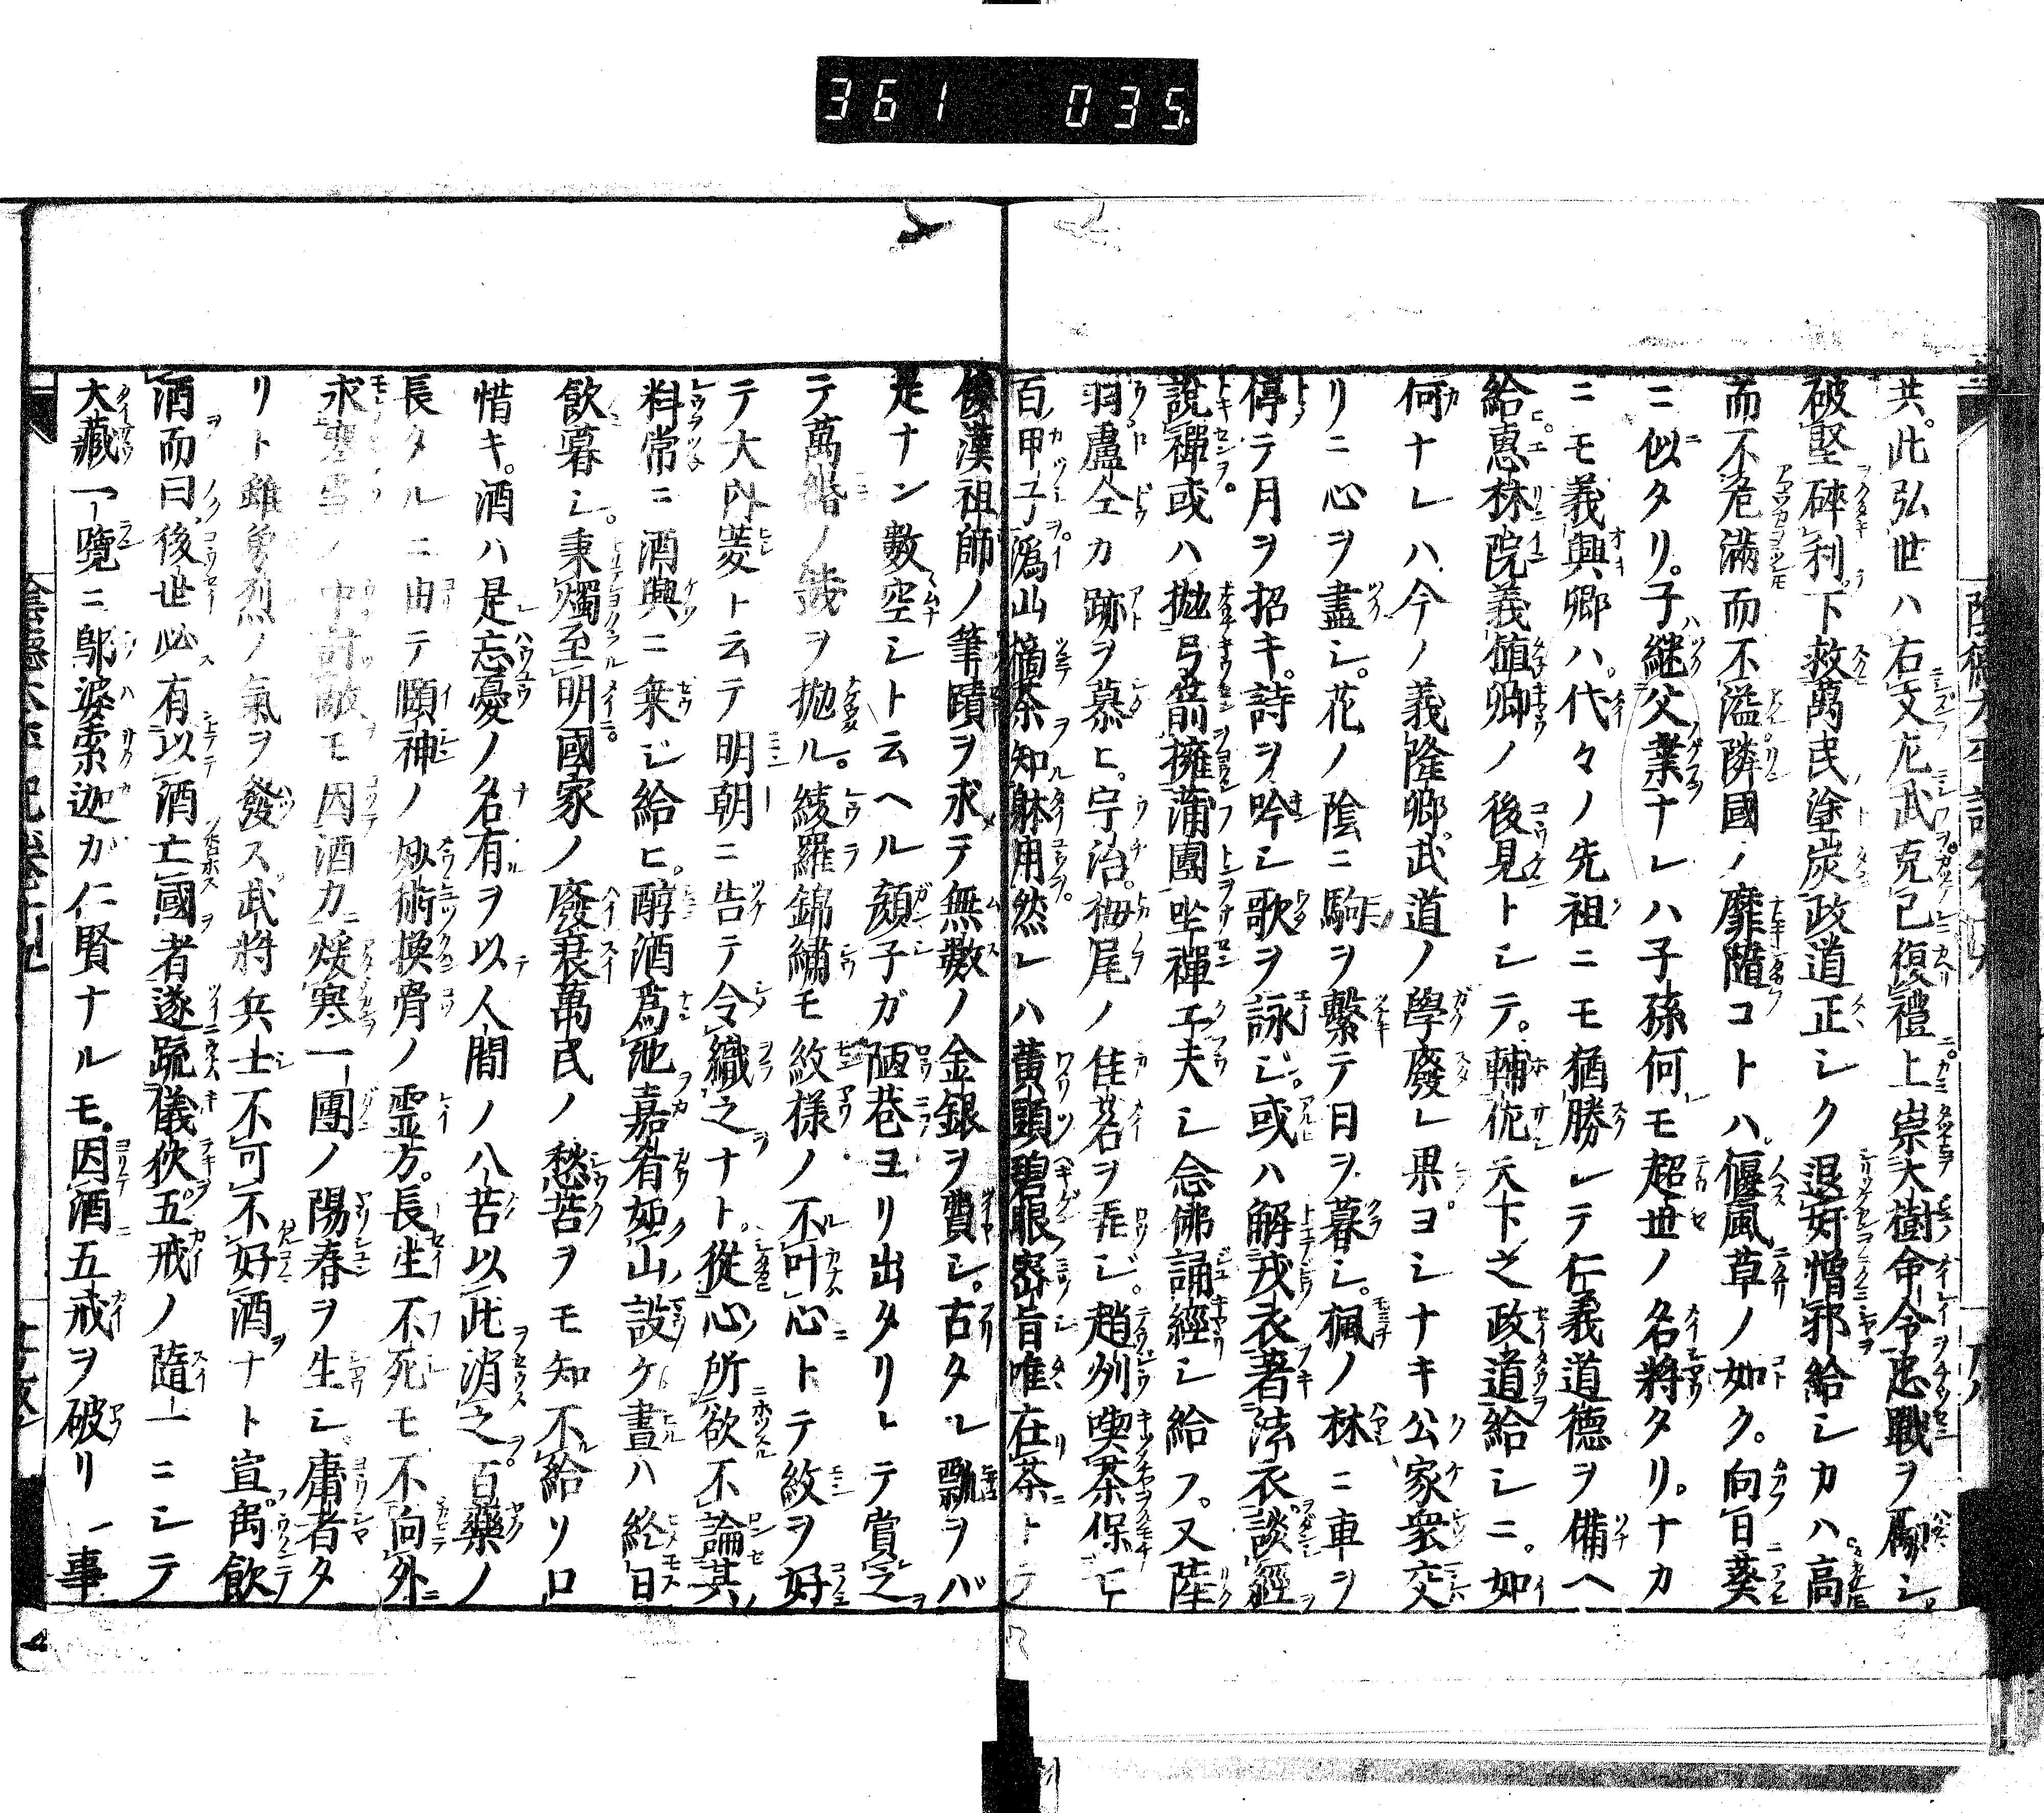 361 035
共。此弘世ハ右文左武克己復禮上崇大樹命令忠職ヲ勵シ。
破堅碎利。下救萬民塗炭政道正シク退奸憎邪給シカハ。高
而不危滿而不溢隣國ノ靡隨コトハ。偃風草ノ如ク。向日葵
ニ似タリ。子継父業ナレハ子孫何モ超世ノ名將タリ。ナカ
ニモ義興卿ハ。代々ノ先祖ニモ猶勝レテ仁義道德ヲ備ヘ
給惠林院義植卿ノ後見トシテ。輔佐天下之政道給シニ。如
何ナレハ今ノ義隆卿武道ノ學廢レ果ヨシナキ公家衆交
リニ心ヲ盡シ。花ノ陰ニ駒ヲ繫テ日ヲ暮シ。楓ノ林ニ車ヲ
停テ月ヲ招キ。詩ヲ吟シ歌ヲ詠ジ。或ハ解戎衣著法衣。談經
說禪或ハ拋弓箭擁蒲團坐禪工夫シ念佛誦經シ給フ。又陸
羽盧仝カ跡ヲ慕ヒ。宇治。栂尾ノ佳茗ヲ弄ジ。趙州喫茶保七
百甲子。潙山摘茶知躰用然レハ黃頭碧眼密旨唯在茶トテ
倭漢祖師ノ筆蹟ヲ求テ無數ノ金銀ヲ費シ。古タレ瓢ヲバ
是ナン數空シト云ヘル顔子ガ陋巷ヨリ出タリトテ賞之
テ萬緡ノ錢ヲ拋ル。綾羅錦繡モ紋樣ノ不叶心トテ紋ヲ好
テ大內菱ト云テ明朝ニ告テ令織之ナト。從心所欲不論其
料常ニ酒興ニ乗ジ給ヒ。醇酒爲池嘉肴如山設ケ晝ハ終日
飮暮シ。秉燭至明國家ノ廢衰萬民ノ愁苦ヲモ知不給ソ口
惜キ。酒ハ是忘憂ノ名有ヲ以テ人間ノ八苦以此消之百藥ノ
長タルニ由テ頤神ノ妙術換骨ノ霊方。長生不死モ不向外
求寒雪ノ中討敵モ因酒力煖寒一團ノ陽春ヲ生シ。庸者タ
リト雖勇烈ノ氣ヲ發ス武將兵士不可不好酒ナト宣。禹飮
酒而曰後世必有以酒亡國者遂疏儀狄。五戒ノ隨一ニシテ
大藏一覽ニ鄔婆索迦ガ仁賢ナルモ。因酒五戒ヲ破リ一事